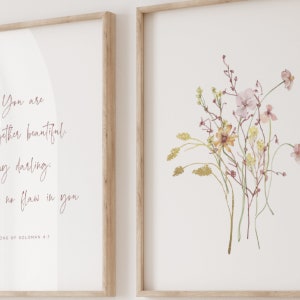 You are
ether beautiful,
y darling.
no flaw in you
ONG OF SOLOMON 4:7